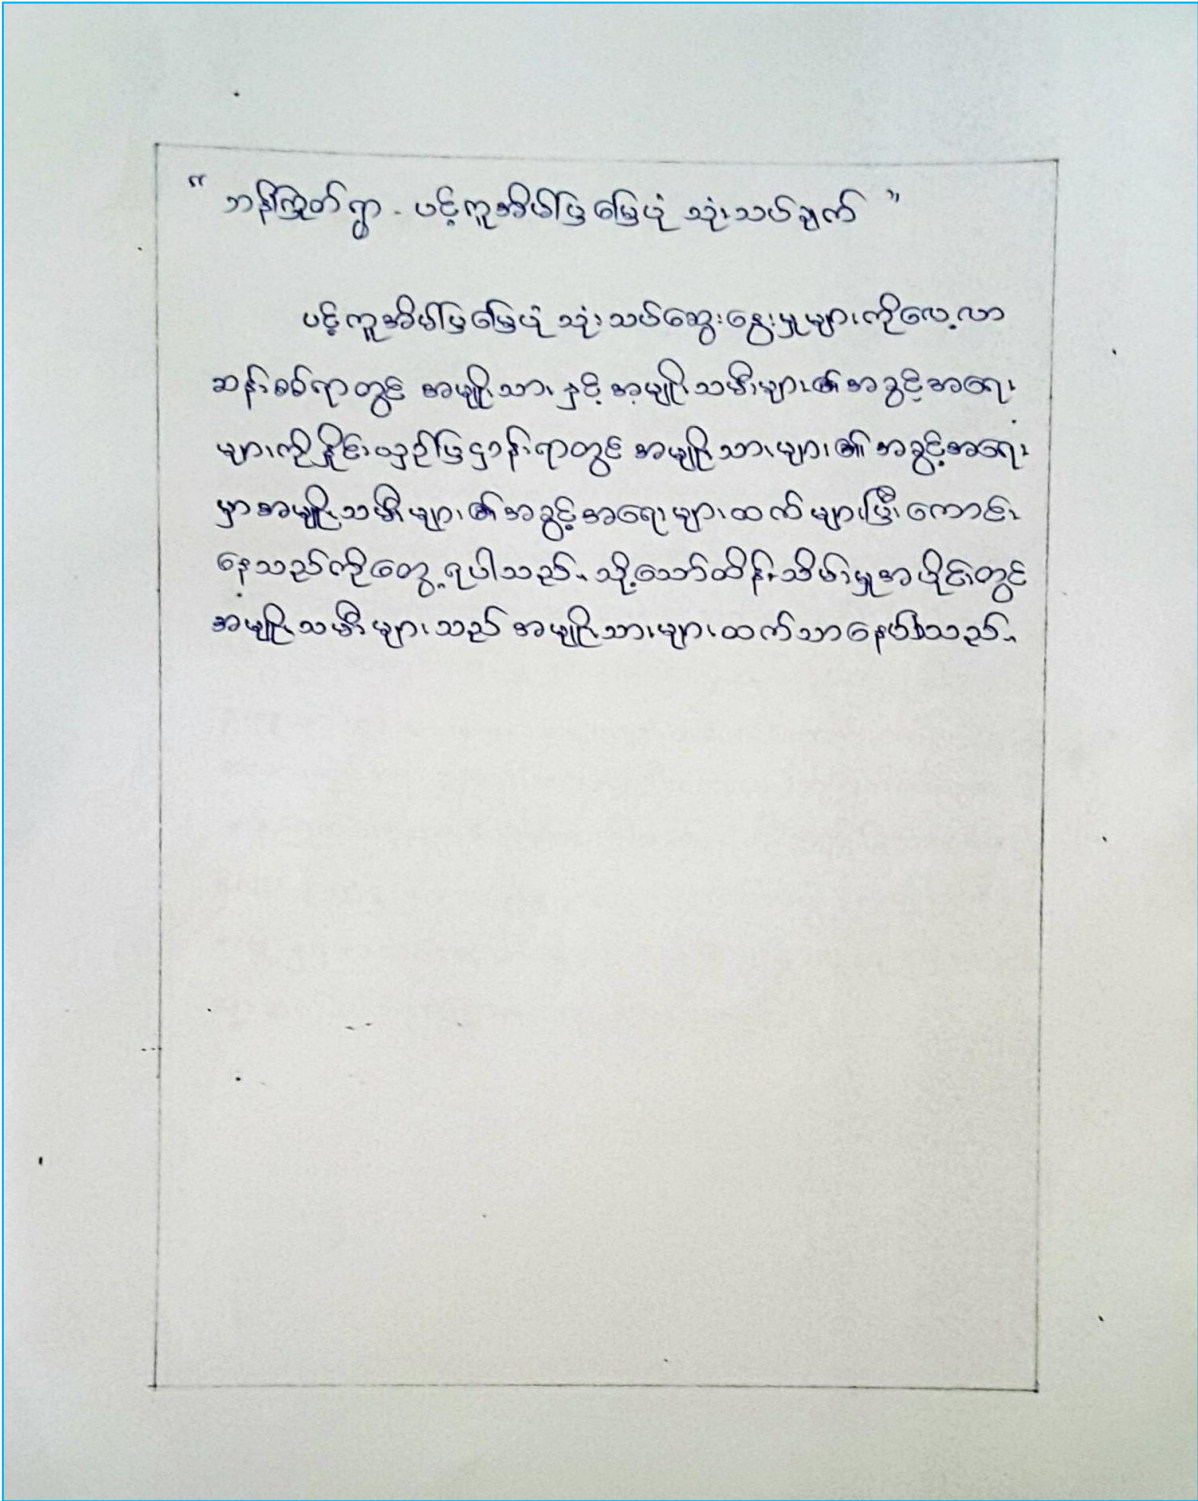 “ ဘန်ကြွတ်ရွာ - ပင့်ကူအိမ်ပြမြေပုံ သုံးသပ်ချက် ”
ပင့်ကူအိမ်ပြမြေပုံ သုံးသပ်ဆွေးနွေးမှုများကိုလေ့လာ
ဆန်းစစ်ရာတွင် အမျိုးသား နှင့် အမျိုးသမီးများ၏အခွင့်အရေး
များကိုနှိုင်းယှဉ်ပြဌာန်းရာတွင် အမျိုးသားများ၏ အခွင့်အရေး
မှာအမျိုးသမီးများ၏အခွင့်အရေးများထက်များပြီးကောင်း
နေသည်ကိုတွေ့ရပါသည်။ သို့သော်ထိန်းသိမ်းမှုအပိုင်းတွင်
အမျိုးသမီးများသည် အမျိုးသားများထက်သာနေပါသည်။